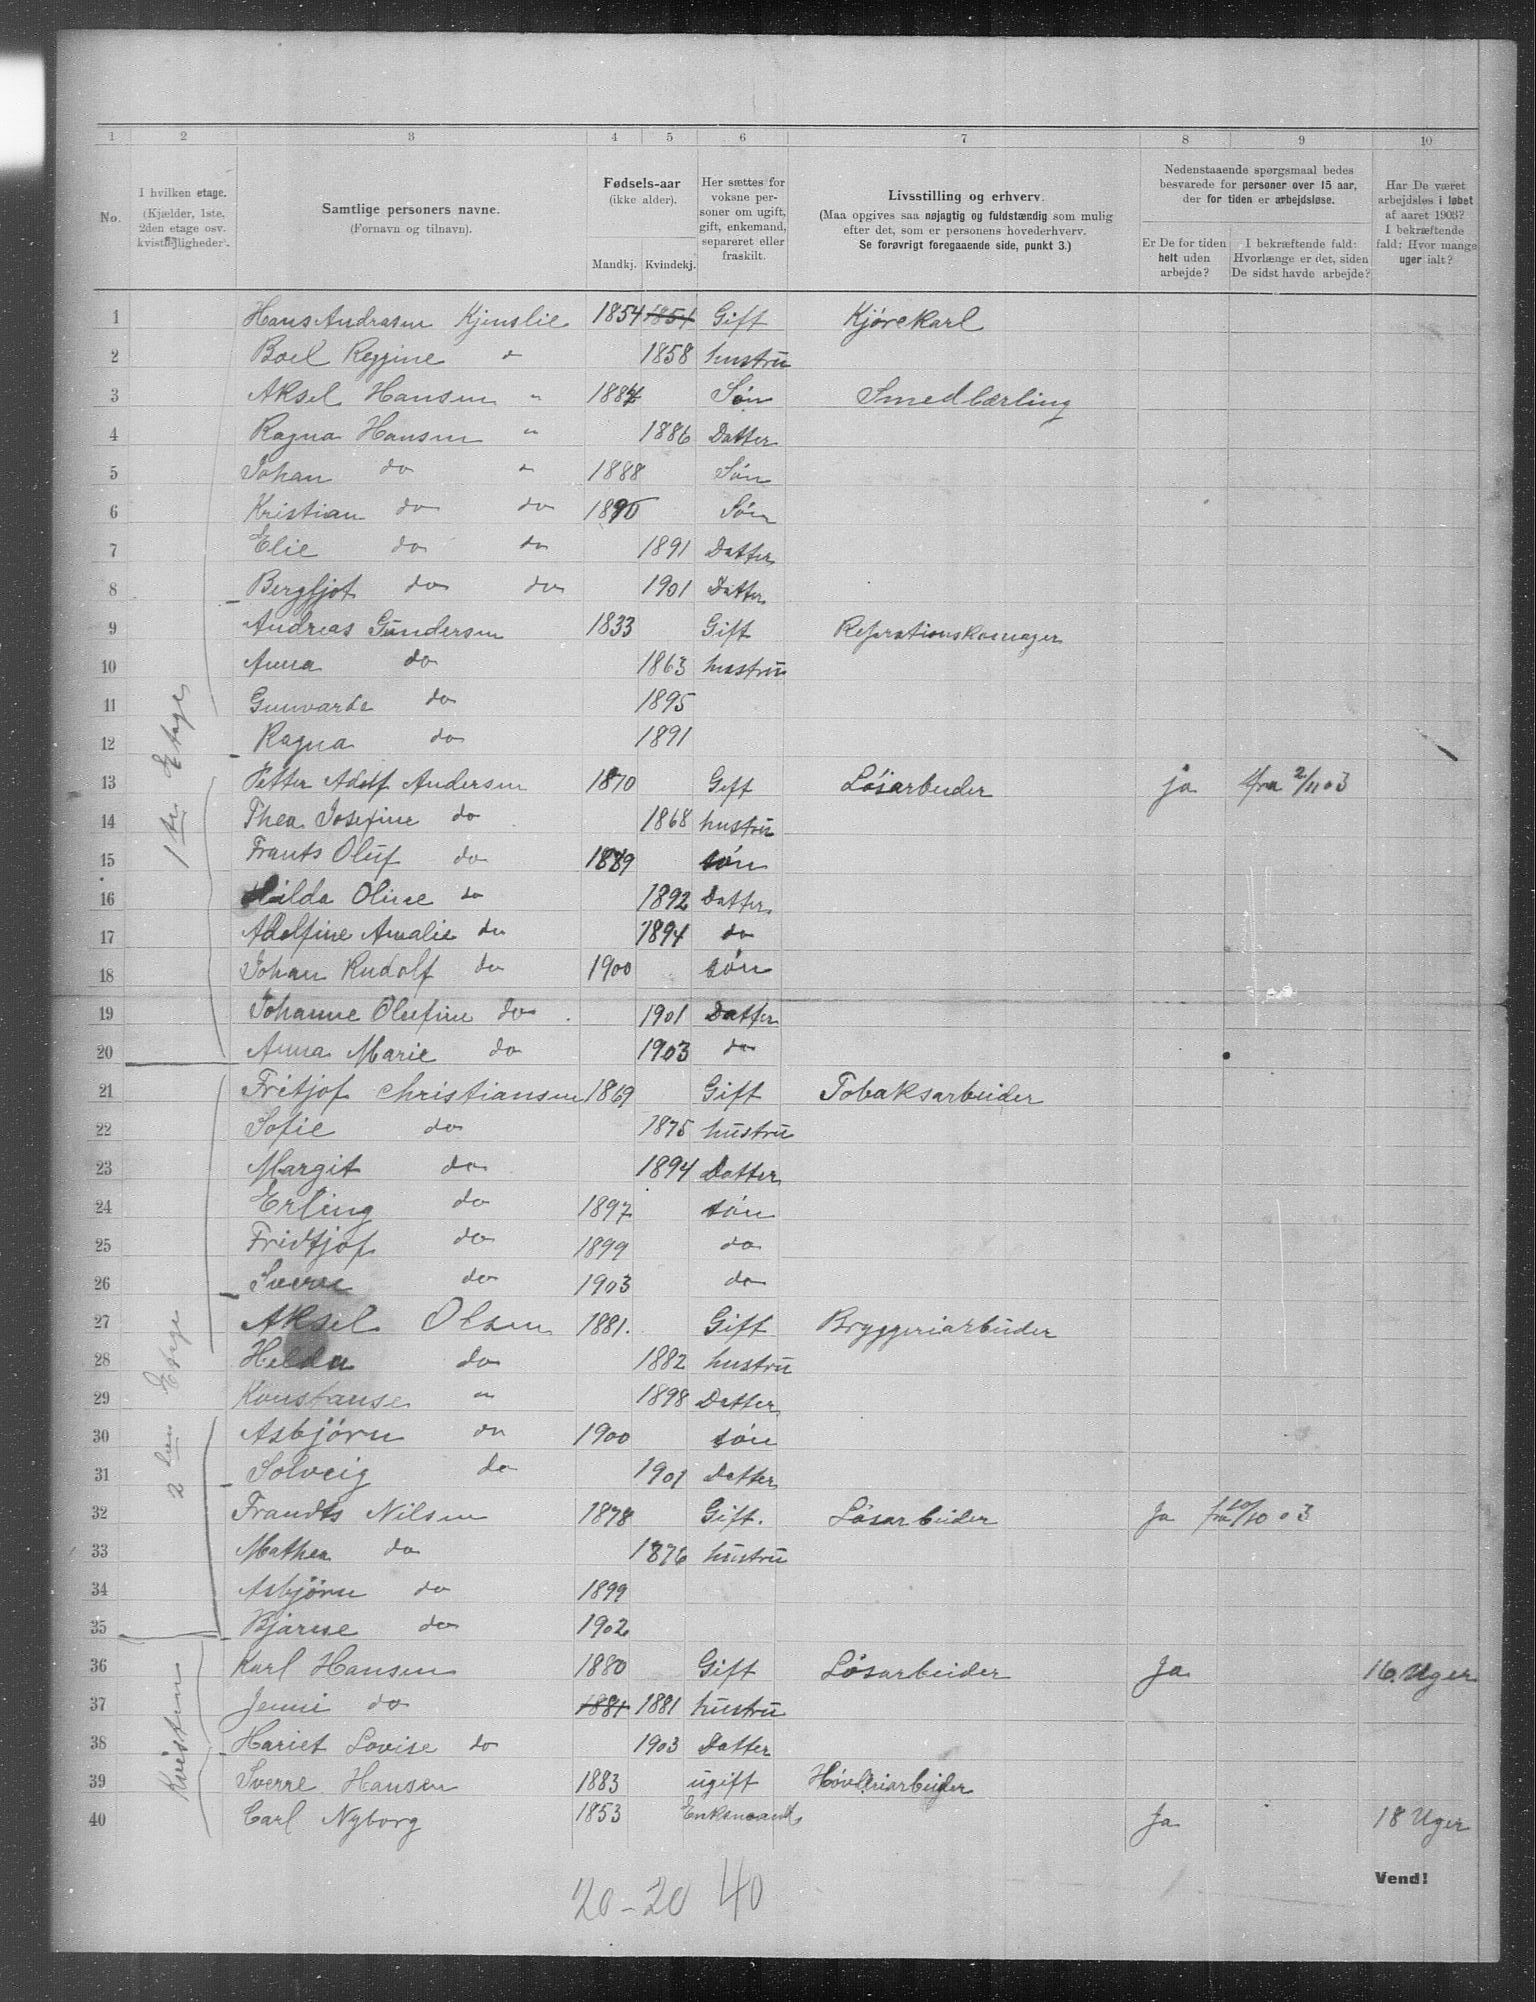 1 2 3 4 5 6 7 8 9 10
No.
I hvilken etage.
(Kjælder, 1ste,
2den etage osv.
kvistlejligheder).
Samtlige personers navne.
(Fornavn og tilnavn).
Fødsels-aar
(ikke alder).
Mandkj. Kvindekj.
Her sættes for
voksne per-
soner om ugift,
gift, enkemand,
separeret eller
fraskilt.
Livsstilling og erhverv.
(Maa opgives saa nøjagtig og fuldstændig som mulig
efter det, som er personens hovederhverv.
Se forøvrigt foregaaende side, punkt 3.)
Nedenstaaende spørgsmaal bedes
besvarede for personer over 15 aar,
der for tiden er arbejdsløse.
Er De for tiden
helt uden
arbejde?
I bekræftende fald:
Hvorlænge er det, siden
De sidst havde arbejde?
Har De været
arbejdsløs i løbet
af aaret 1903?
I bekræftende
fald: Hvor mange
uger ialt?
1ste Etage
1 Hans Andrasen Kjenslie 1854 1854 Gift Kjørekarl
2 Boel Reggine " 1858 hustru
3 Aksel Hansen " 1884 Søn Smedlærling
4 Ragna Hansen " 1886 Datter
5 Johan do " 1888 Søn
6 Kristian do do 1890 Søn
7 Elie do do 1891 Datter
8 Bergljot do do 1901 Datter
9 Andreas Gundersen 1833 Gift
10 Anna do 1863 hustru
11 Gunvarda do 1895
12 Ragna do 1891
13 Petter Adolf Andersen 1870 Gift Løsarbeider ja fra 2/11 03
14 Thea Josefine do 1868 hustru
15 Frants Oluf do 1889 søn
16 Hilda Oline do 1892 Datter
17 Adolfine Amalie do 1894 do
18 Johan Rudolf do 1900 søn
19 Johanne Olufine do 1901 Datter
20 Anna Marie do 1903 do
2den Etage
21 Fritjof Christiansen 1869 Gift Tobaksarbeider
22 Sofie do 1875 hustru
23 Margit do 1894 Datter
24 Erling do 1897 søn
25 Fridtjof do 1899 do
26 Sverre do 1903 do
27 Aksel Olsen 1881. Gift Bryggeriarbeider
28 Hilda do 1882 hustru
29 Konstanse " 1898 Datter
30 Asbjørn do 1900 søn
31 Solveig do 1901 Datter
32 Frandts Nilsen 1878 Gift. Løsarbeider Ja fra 20/10 03
33 Mathea do 1876 hustru
34 Asbjørn do 1899
35 Bjarne do 1902
Kvisten
36 Karl Hansen 1880 Gift Løsarbeider Ja 16 Uger
37 Jenni do 1881 1881 hustru
38 Hariet Lovise do 1903 Datter
39 Sverre Hansen 1883 ugift Høvleriarbeider
40 Carl Nyborg 1853 Enkemand Ja 18 Uger
Vend!
20-20 40